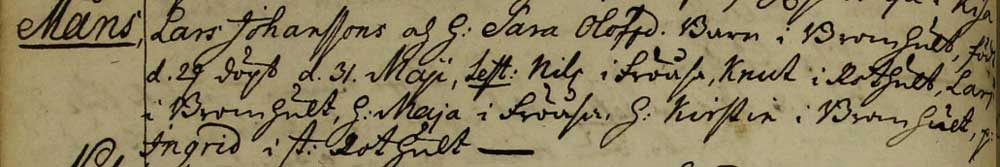 Måns, Lars Johanssons og H: Sara Olofsd. Barn i Bromhult, föd
d. 29 döpt d. 31. Maji, Test: Nils i Fröåsa, Knut i Rothult, Lars
i Bromhult, H: Maja i Fröåsa, H: Kirstin i Bromhult, p:
Ingrid i St: Rothult —